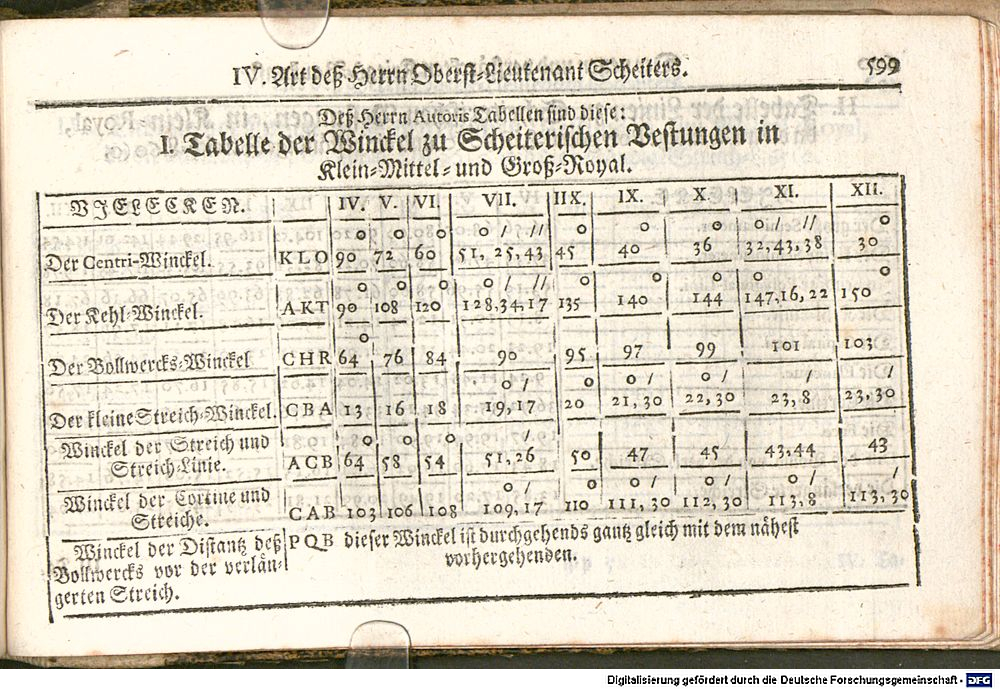 IV. Art deß Herrn Oberst-Lieutenant Scheiters. 599
Deß Herrn Autoris Tabellen sind diese:
I. Tabelle der Winckel zu Scheiterischen Vestungen in
Klein-Mittel- und Groß-Royal.
VIELECKEN. IV. V. VI. VII. IIX. IX. X. XI. XII.
o o o o / // o o o o / // o
Der Centri-Winckel. KLO 90 72 60 51, 25, 43 45 40 36 32, 43, 38 30
o o o o / // o o o o o
Der Kehl-Winckel. AKT 90 108 120 128, 34, 17 135 140 144 147, 16, 22 150
o
Der Bollwercks-Winckel CHR 64 76 84 90 95 97 99 101 103
o / o o / o / o / /
Der kleine Streich-Winckel. CBA 13 16 18 19, 17 20 21, 30 22, 30 23, 8 23, 30
Winckel der Streich und
o o o / o o o / o
Streich-Linie. ACB 64 58 54 51, 26 50 47 45 43, 44 43
Winckel der Cortine und
o / o o / o / o / /
Streiche. CAB 103 106 108 109, 17 110 111, 30 112, 30 113, 8 113, 30
Winckel der Distantz deß PQB dieser Winckel ist durchgehends gantz gleich mit dem nähest
Bollwercks vor der verlän- vorhergehenden.
gerten Streich.
Digitalisierung gefördert durch die Deutsche Forschungsgemeinschaft - DFG